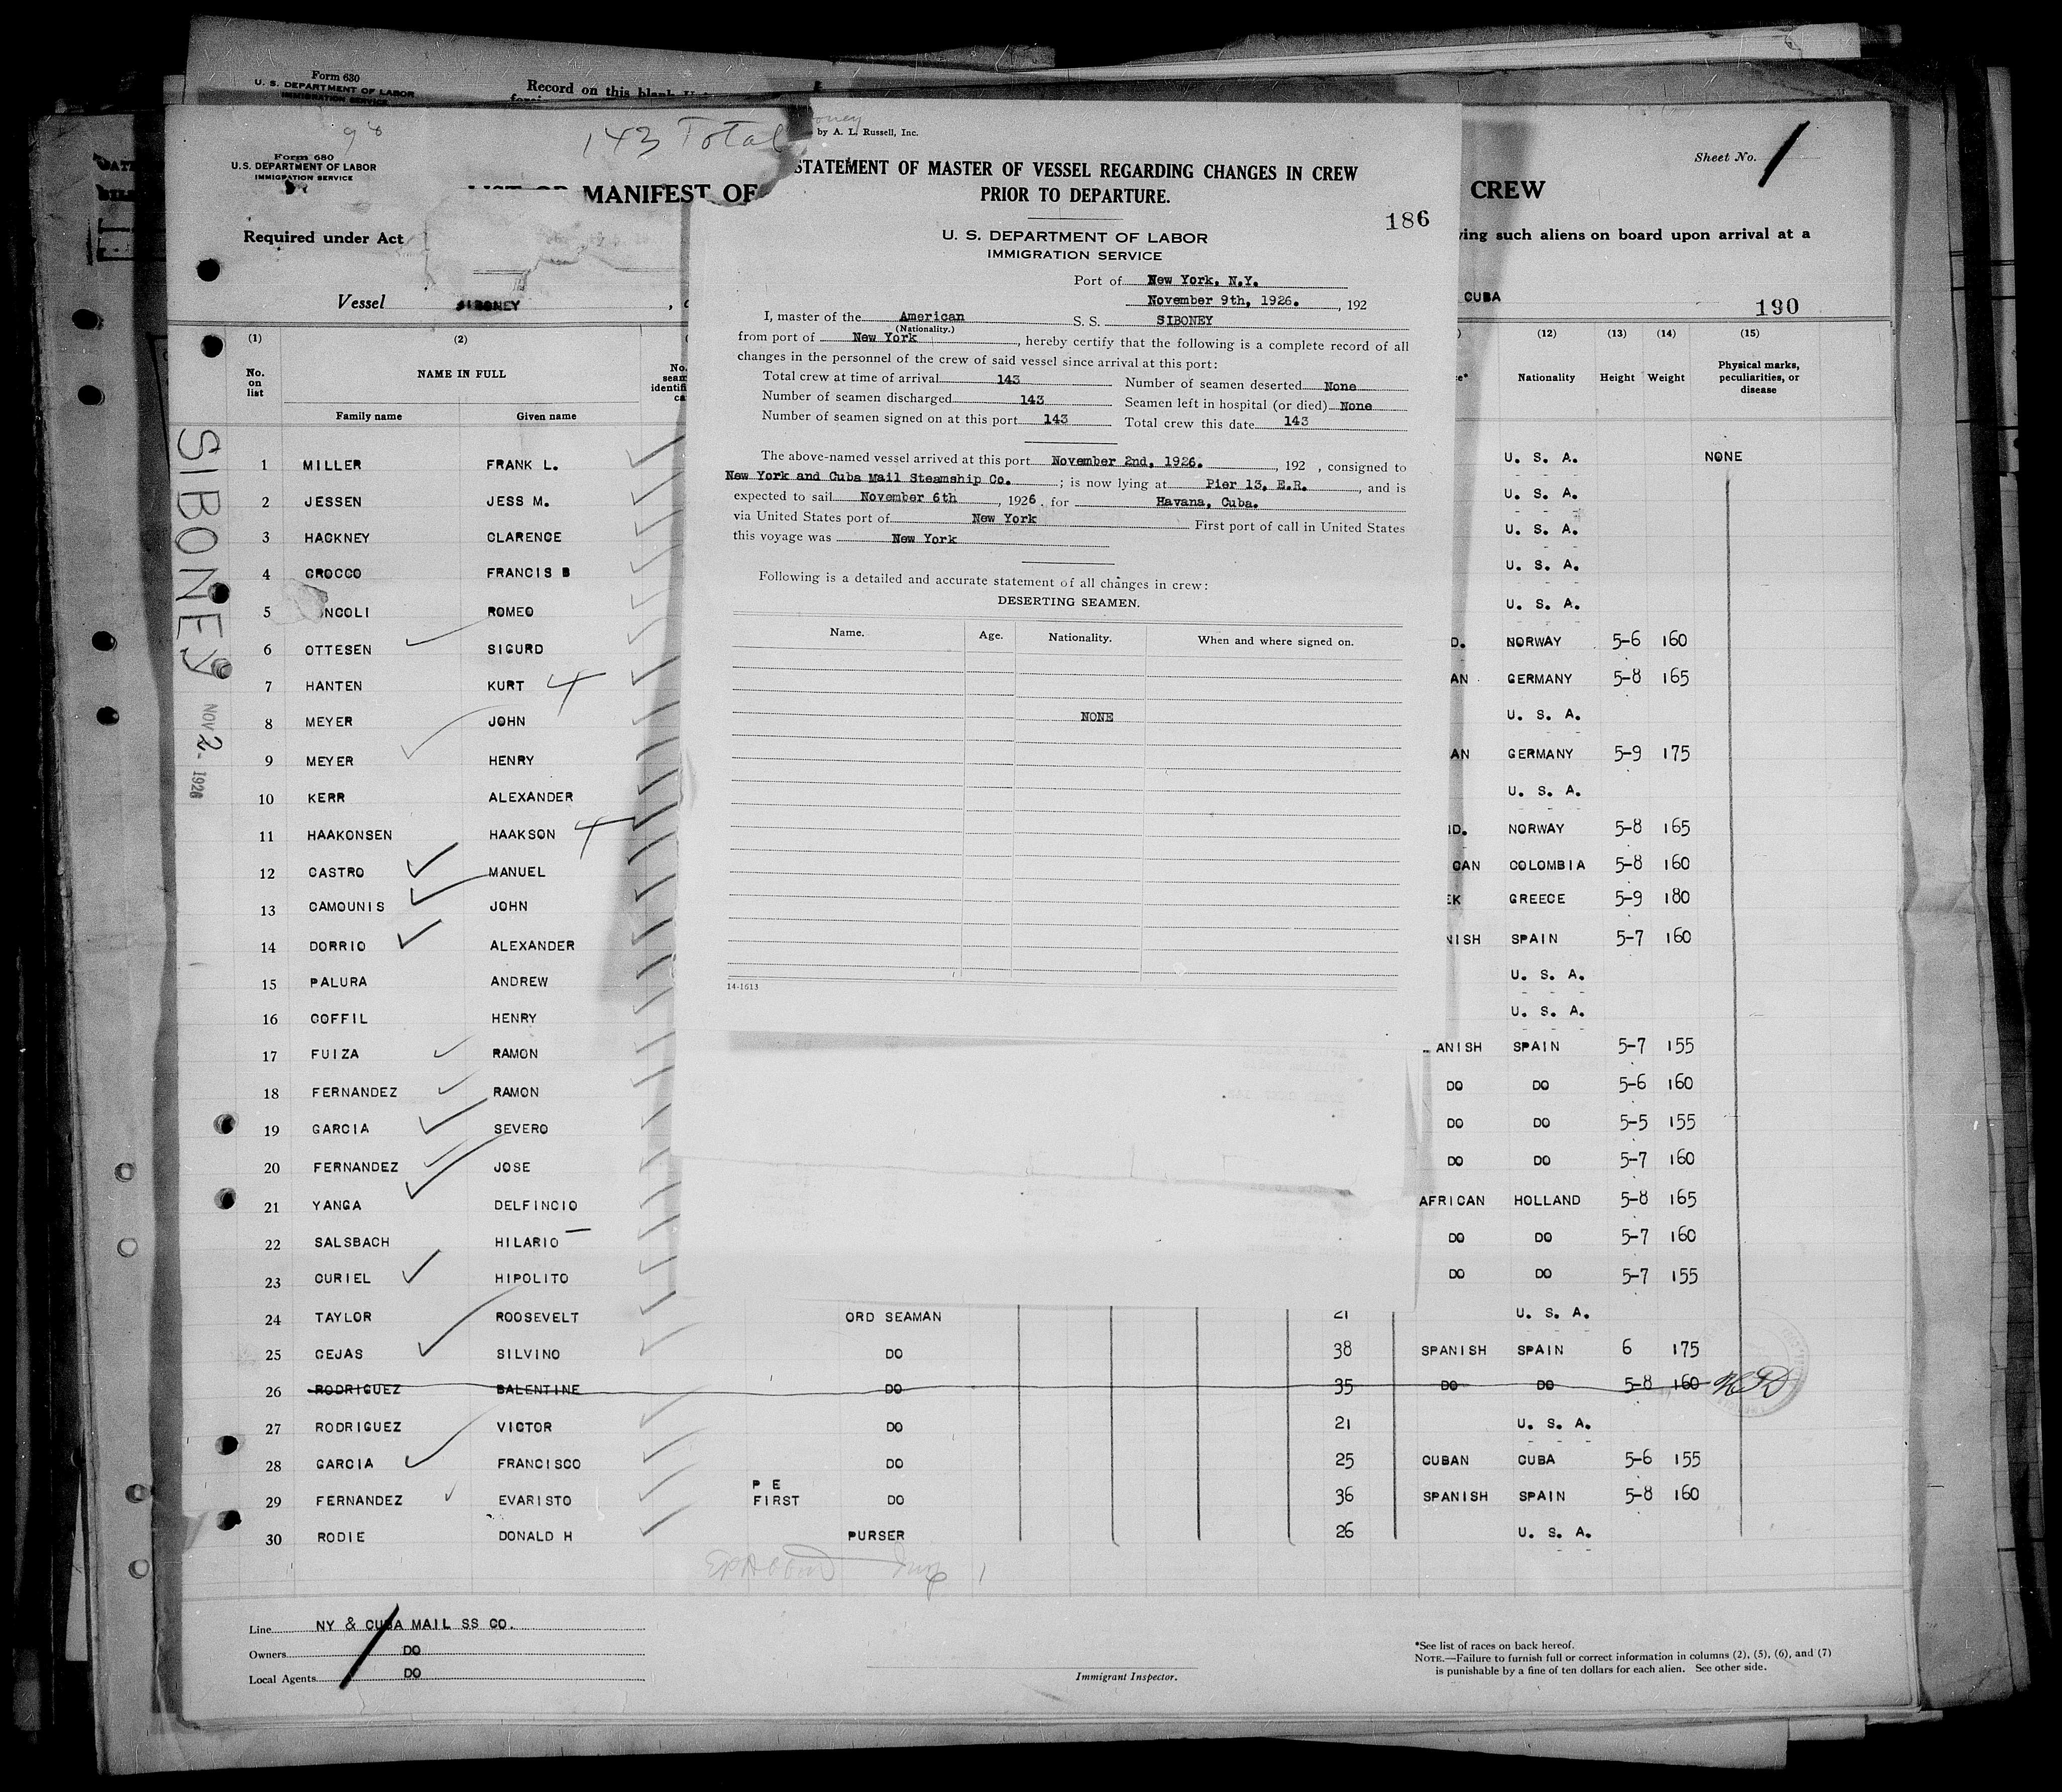 Form 630
U. S. DEPARTMENT OF LABOR
IMMIGRATION SERVICE
Record on this blank
98
143 Total
Form 680
U. S. DEPARTMENT OF LABOR
IMMIGRATION SERVICE
MANIFEST OF
CREW
Sheet No. 1
Required under Act
ving such aliens on board upon arrival at a
Vessel SIBONEY
CUBA
190
by A. L. Russell, Inc.
STATEMENT OF MASTER OF VESSEL REGARDING CHANGES IN CREW
PRIOR TO DEPARTURE.
186
U. S. DEPARTMENT OF LABOR
IMMIGRATION SERVICE
Port of New York, N.Y.
November 9th, 1926. , 192
I, master of the American S. S. SIBONEY
(Nationality.)
from port of New York , hereby certify that the following is a complete record of all
changes in the personnel of the crew of said vessel since arrival at this port:
Total crew at time of arrival 143 Number of seamen deserted None
Number of seamen discharged 143 Seamen left in hospital (or died) None
Number of seamen signed on at this port 143 Total crew this date 143
The above-named vessel arrived at this port November 2nd, 1926. , 192 , consigned to
New York and Cuba Mail Steamship Co. ; is now lying at Pier 13, E.R. , and is
expected to sail November 6th , 1926 . for Havana, Cuba.
via United States port of New York First port of call in United States
this voyage was New York
Following is a detailed and accurate statement of all changes in crew:
DESERTING SEAMEN.
Name. Age. Nationality. When and where signed on.
NONE
14-1613
(1) (2) (12) (13) (14) (15)
No. on list NAME IN FULL Nationality Height Weight Physical marks, peculiarities, or disease
Family name Given name
SIBONEY
NOV 2- 1926
1 MILLER FRANK L. U. S. A. NONE
2 JESSEN JESS M. U. S. A.
3 HACKNEY CLARENCE U. S. A.
4 CROCCO FRANCIS B U. S. A.
5 NCOLI ROMEO U. S. A.
6 OTTESEN SIGURD D. NORWAY 5-6 160
7 HANTEN KURT AN GERMANY 5-8 165
8 MEYER JOHN U. S. A.
9 MEYER HENRY AN GERMANY 5-9 175
10 KERR ALEXANDER U. S. A.
11 HAAKONSEN HAAKSON D. NORWAY 5-8 165
12 CASTRO MANUEL CAN COLOMBIA 5-8 160
13 CAMOUNIS JOHN EK GREECE 5-9 180
14 DORRIO ALEXANDER NISH SPAIN 5-7 160
15 PALURA ANDREW U. S. A.
16 COFFIL HENRY U. S. A.
17 FUIZA RAMON ANISH SPAIN 5-7 155
18 FERNANDEZ RAMON DO DO 5-6 160
19 GARCIA SEVERO DO DO 5-5 155
20 FERNANDEZ JOSE DO DO 5-7 160
21 YANGA DELFINCIO AFRICAN HOLLAND 5-8 165
22 SALSBACH HILARIO DO DO 5-7 160
23 CURIEL HIPOLITO DO DO 5-7 155
24 TAYLOR ROOSEVELT ORD SEAMAN 21 U. S. A.
25 CEJAS SILVINO DO 38 SPANISH SPAIN 6 175
26 RODRIGUEZ BALENTINE DO 35 DO DO 5-8 160
27 RODRIGUEZ VICTOR DO 21 U. S. A.
28 GARCIA FRANCISCO DO 25 CUBAN CUBA 5-6 155
29 FERNANDEZ EVARISTO P E FIRST DO 36 SPANISH SPAIN 5-8 160
30 RODIE DONALD H PURSER 26 U. S. A.
Line NY & CUBA MAIL SS CO.
Owners DO
Local Agents DO
Immigrant Inspector.
*See list of races on back hereof.
NOTE.—Failure to furnish full or correct information in columns (2), (5), (6), and (7)
is punishable by a fine of ten dollars for each alien. See other side.